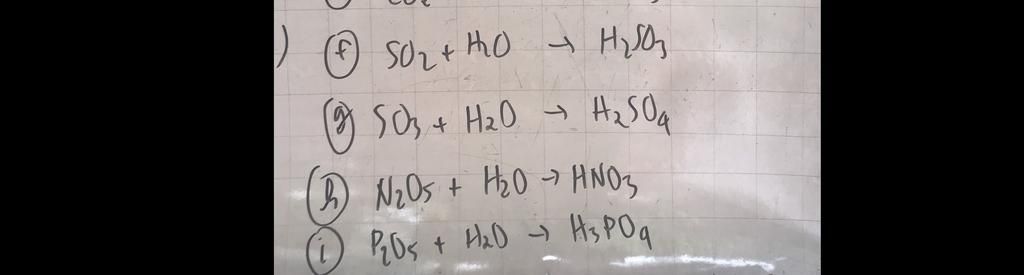 ) (f) SO2 + H2O → H2SO3
(g) SO3 + H2O → H2SO4
(h) N2O5 + H2O → HNO3
(i) P2O5 + H2O → H3PO4